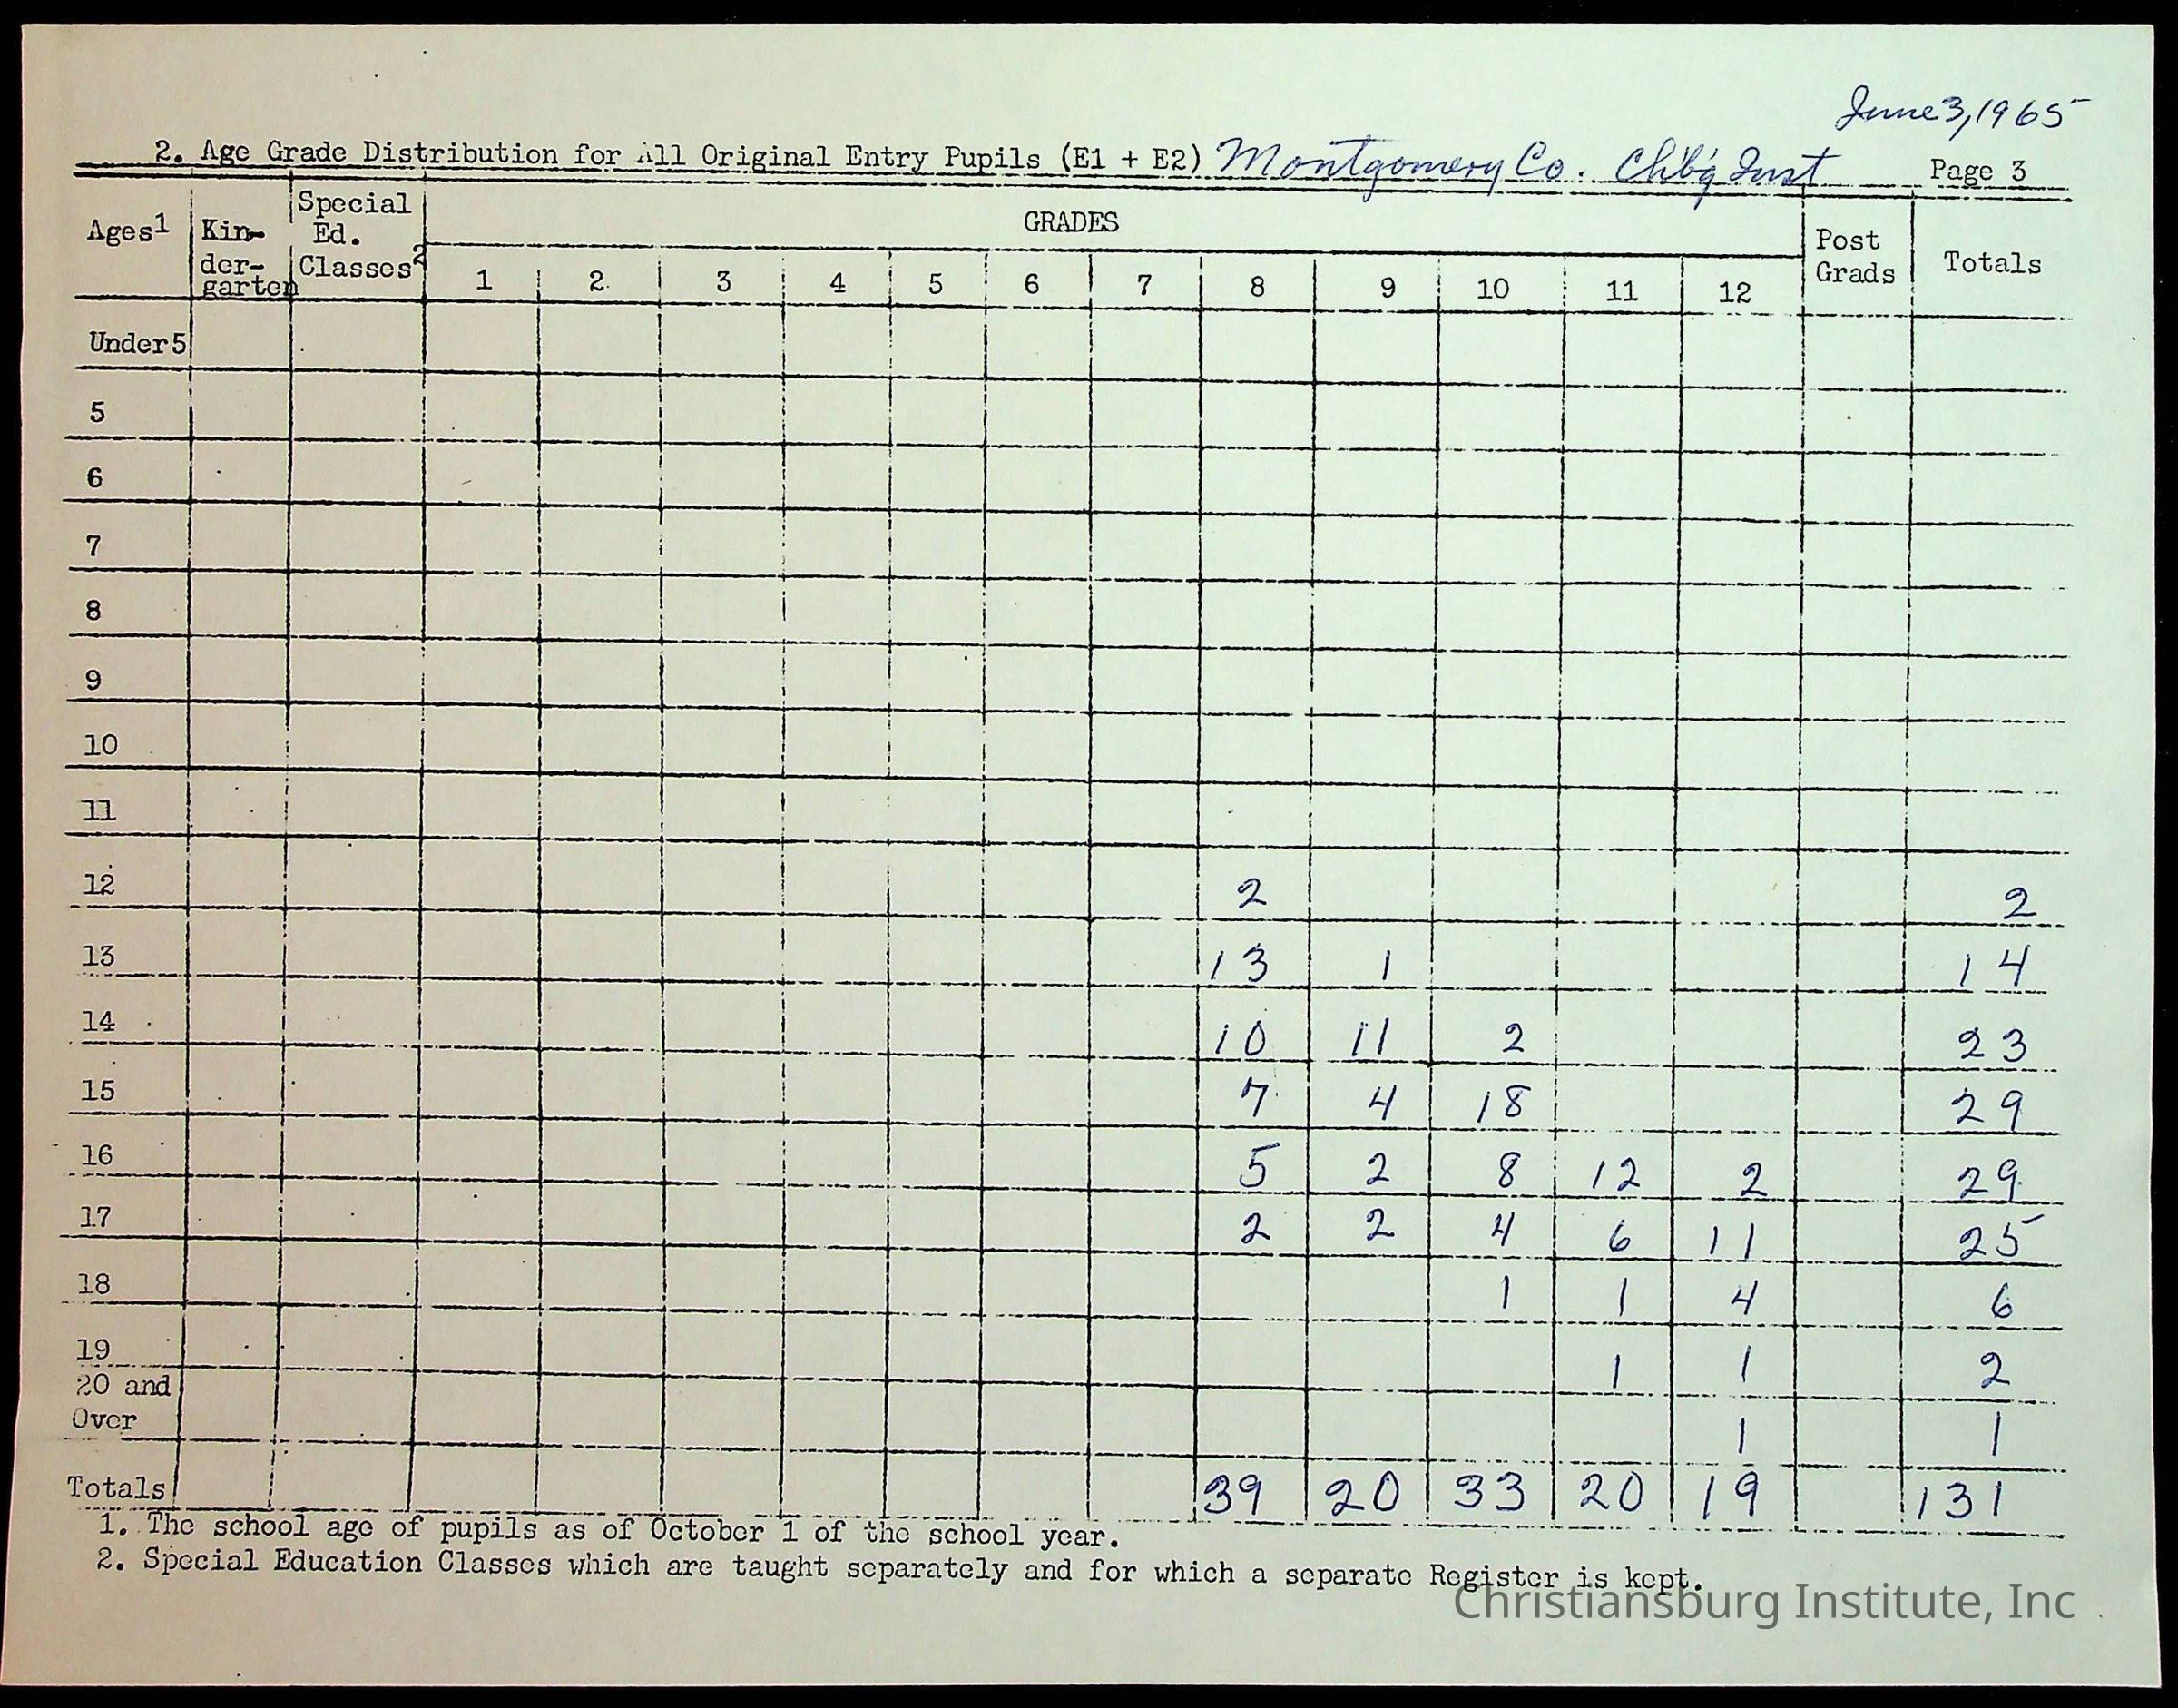 June 3, 1965
2. Age Grade Distribution for All Original Entry Pupils (E1 + E2) Montgomery Co. Ch'b'g Inst Page 3
Ages1 Kin-der-garten Special Ed. Classes2 GRADES Post Grads Totals
1 2 3 4 5 6 7 8 9 10 11 12
Under 5
5
6
7
8
9
10
11
12 2 2
13 13 1 14
14 10 11 2 23
15 7 4 18 29
16 5 2 8 12 2 29
17 2 2 4 6 11 25
18 1 1 4 6
19 1 1 2
20 and
Over 1 1
Totals 39 20 33 20 19 131
1. The school age of pupils as of October 1 of the school year.
2. Special Education Classes which are taught separately and for which a separate Register is kept.
Christiansburg Institute, Inc